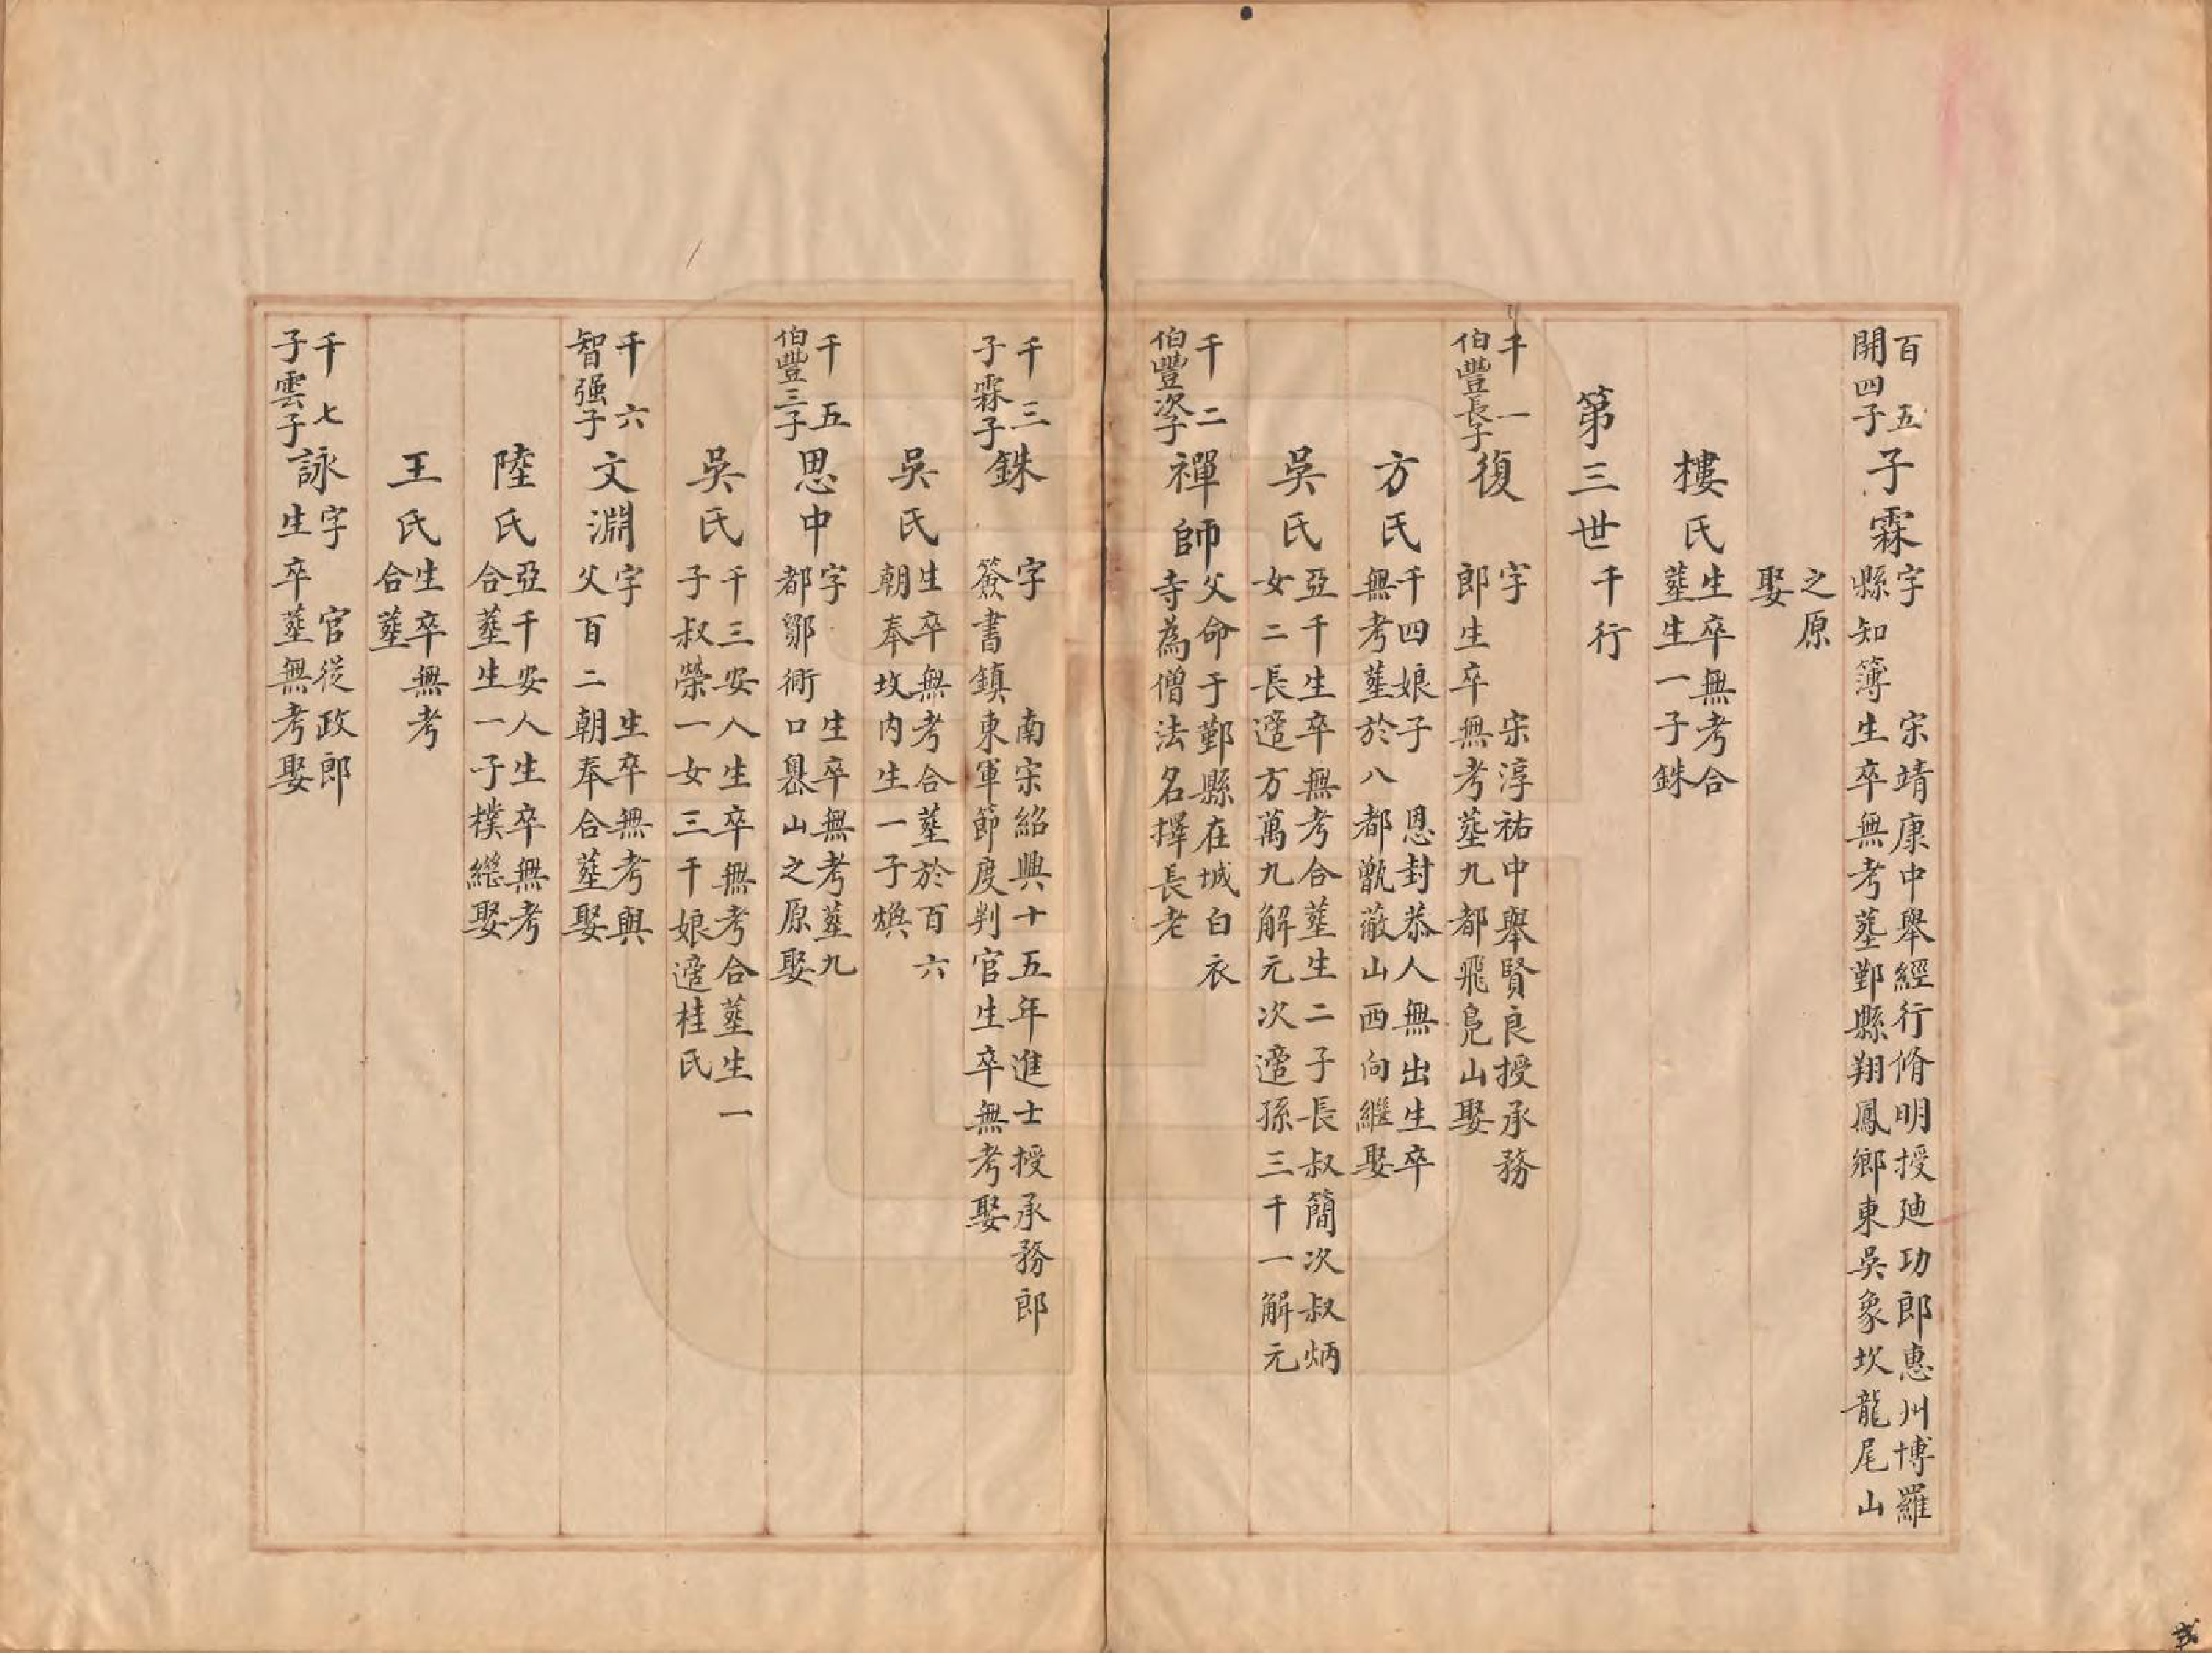 百五
開四子
子霖
字　宋靖康中舉經行脩明授廸功郎惠州博羅
縣知簿生卒無考塟鄞縣翔鳳鄉東吳象坎龍尾山
之原
娶
樓氏
生卒無考合
塟生一子銖
第三世千行
千一
伯豐長子
復
字　宋淳祐中舉賢良授承務
郎生卒無考塟九都飛凫山娶
方氏
千四娘子　恩封恭人無出生卒
無考塟於八都甑蔽山西向繼娶
吳氏
亞千生卒無考合塟生二子長叔簡次叔炳
女二長適方萬九解元次適孫三千一解元
千二
伯豐次子
禪師
父命于鄞縣在城白衣
寺為僧法名擇長老
千三
子霖子
銖
字　南宋紹興十五年進士授承務郎
簽書鎮東軍節度判官生卒無考娶
吳氏
生卒無考合塟於百六
朝奉坟内生一子煥
千五
伯豐三子
思中
字　生卒無考塟九
都鄒衕口嶴山之原娶
吳氏
千三安人生卒無考合塟生一
子叔榮一女三千娘適桂氏
千六
智强子
文淵
字　生卒無考與
父百二朝奉合塟娶
陸氏
亞千安人生卒無考
合塟生一子樸繼娶
王氏
生卒無考
合塟
千七
子雲子
詠
字　官從政郎
生卒塟無考娶